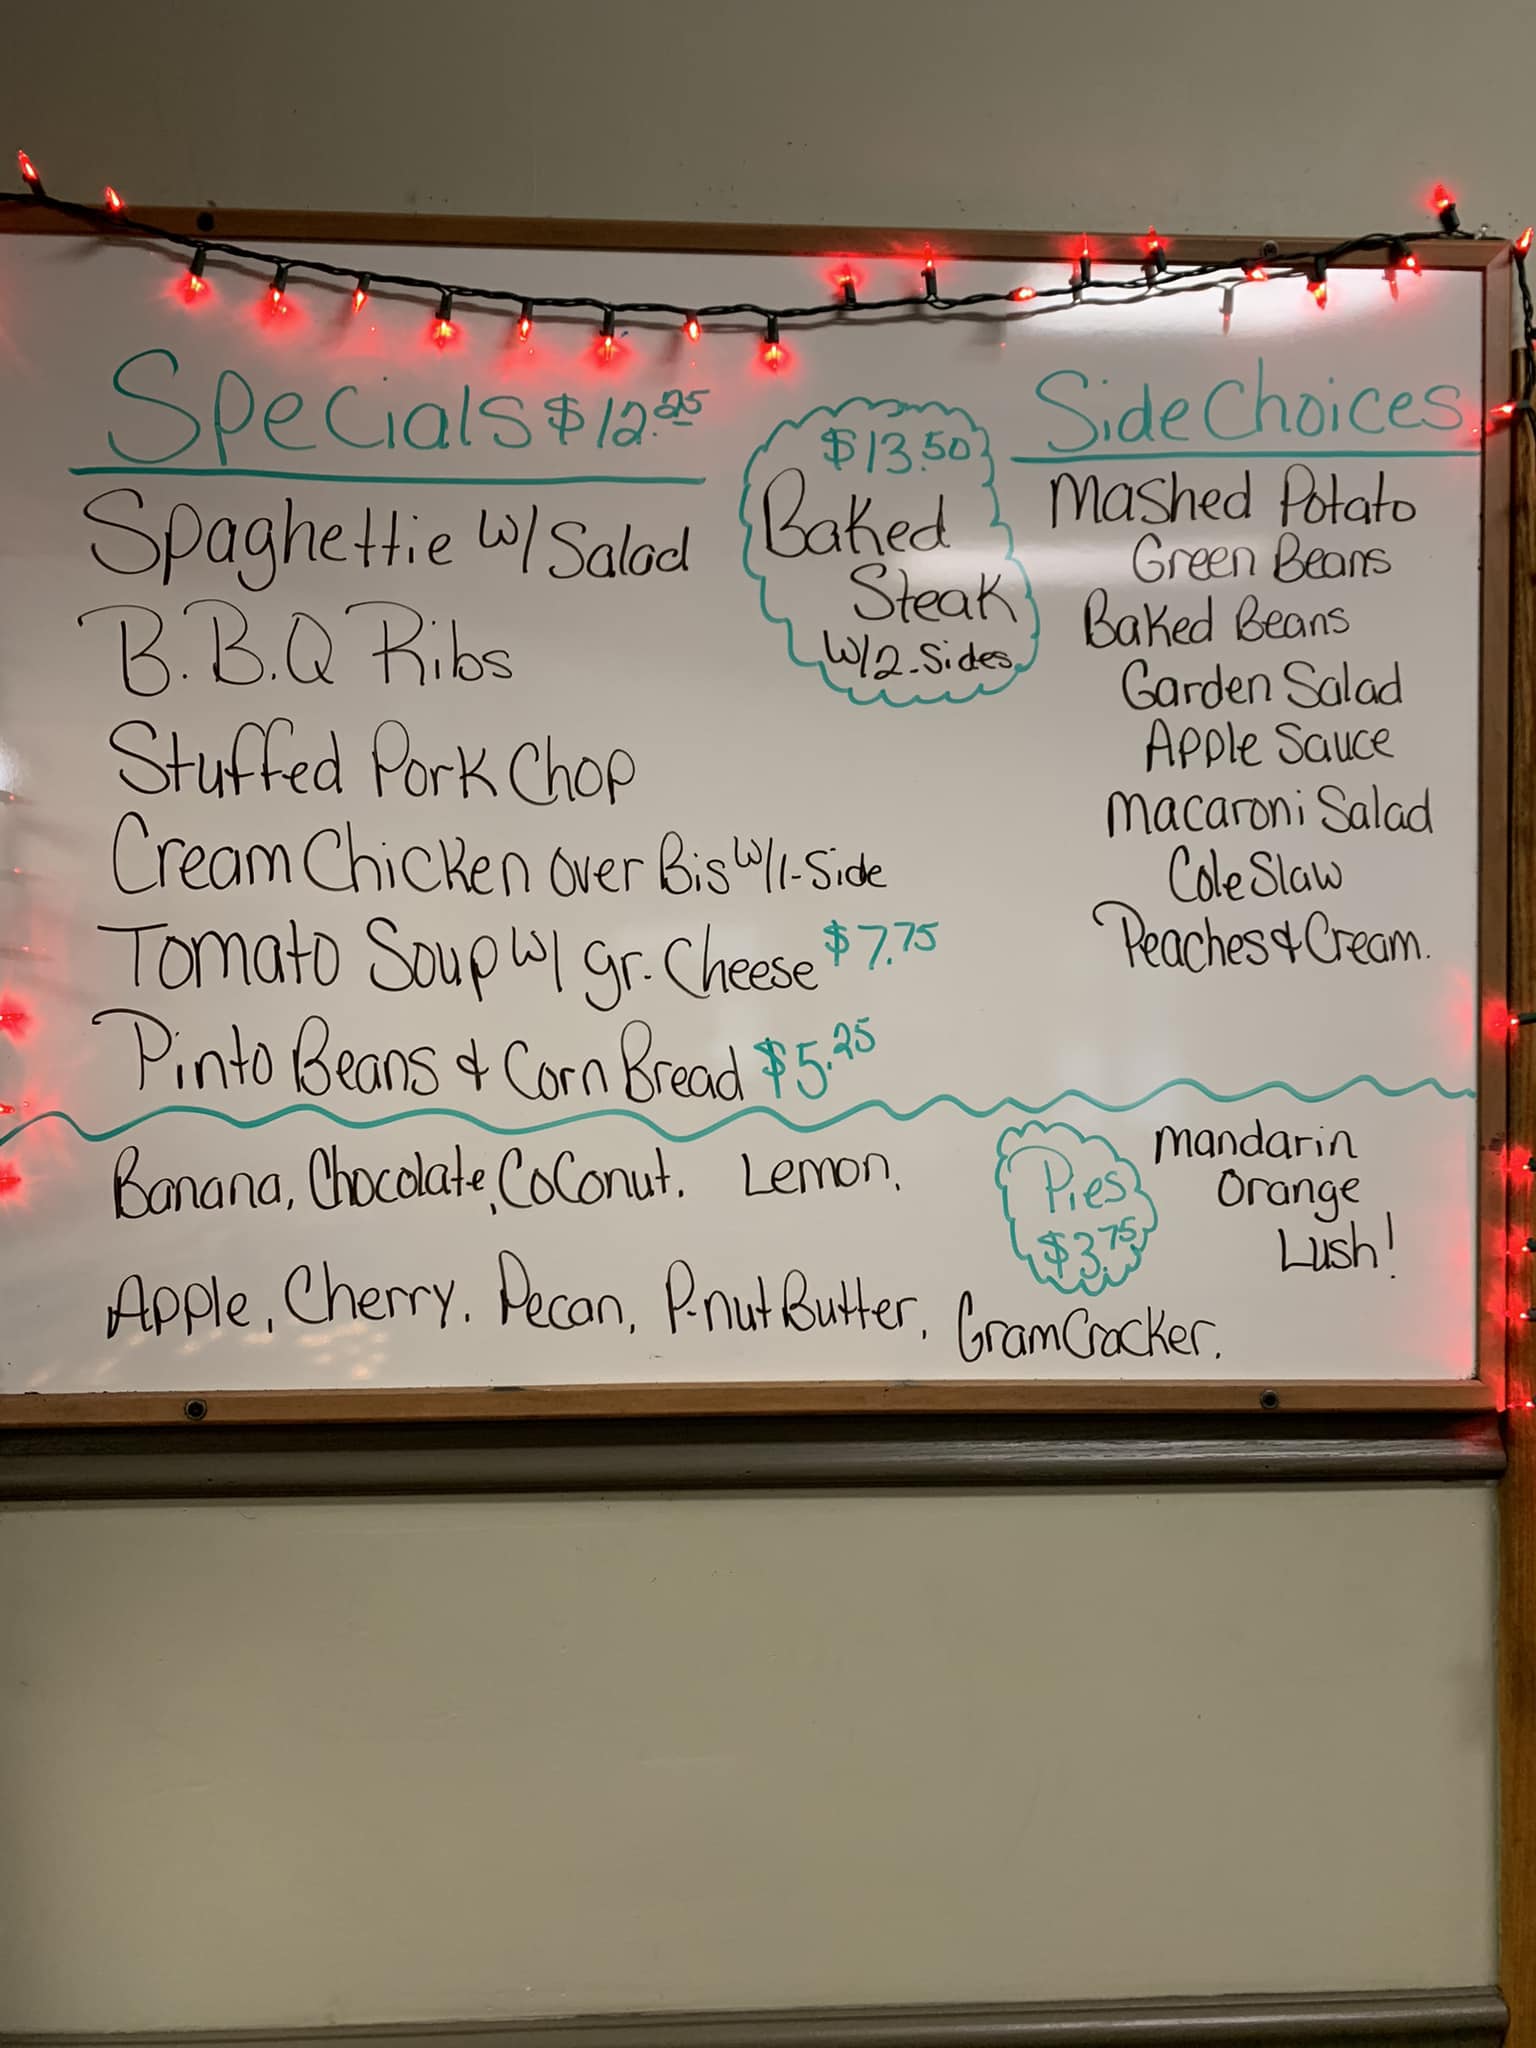 Specials $12.25
Spaghettie w/ Salad
B.B.Q Ribs
Stuffed Pork Chop
Cream Chicken over Bis w/1-Side
Tomato Soup w/ gr. Cheese $7.75
Pinto Beans & Corn Bread $5.25
$13.50
Baked
Steak
W/2-Sides
Side Choices
Mashed Potato
Green Beans
Baked Beans
Garden Salad
Apple Sauce
Macaroni Salad
Cole Slaw
Peaches & Cream.
Banana, Chocolate, CoConut. Lemon.
Apple, Cherry. Pecan, P-nut Butter, Gram Cracker.
Pies
$3.75
Mandarin
Orange
Lush!